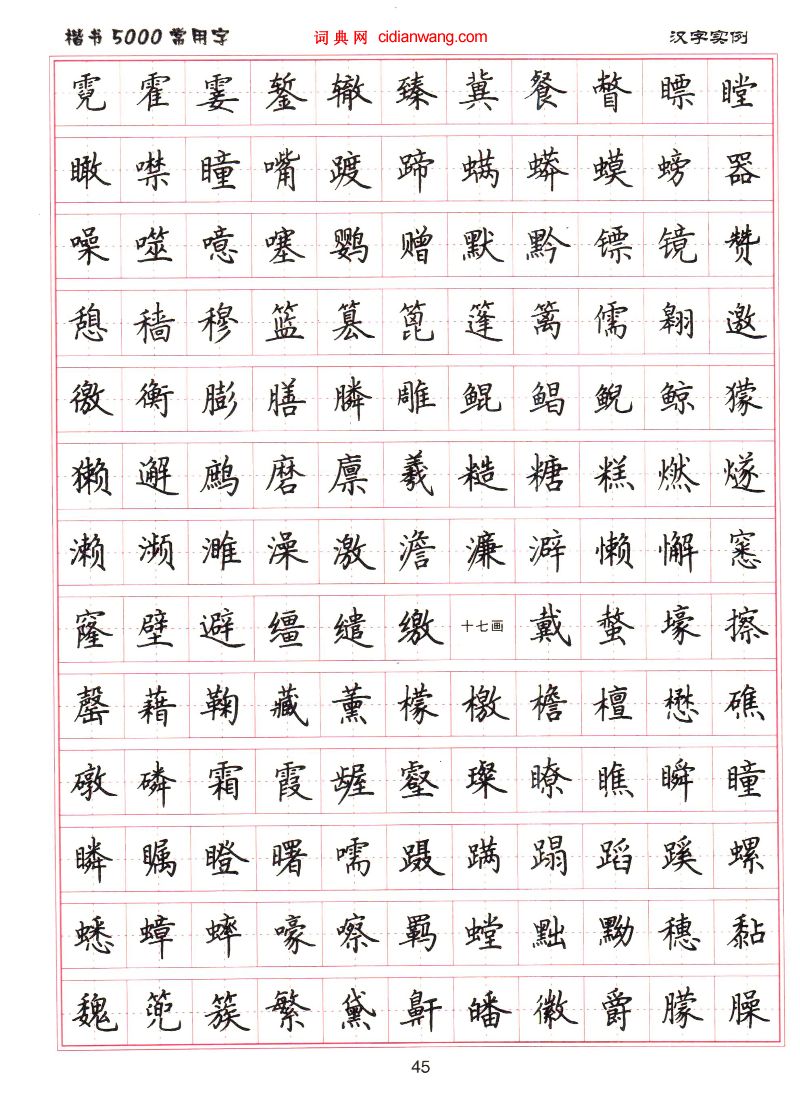 楷书5000常用字 词典网 cidianwang.com 汉字实例
霓霍霎錾辙臻冀餐瞥瞟瞠
瞰噤瞳嘴踱蹄螨蟒蟆螃器
噪噬噫噻鹦赠默黔镖镜赞
憩穑穆篮篡篦篷篱儒翱邀
徼衡膨膳膦雕鲲鲳鲵鲸獴
獭邂鹧磨廪羲糙糖糕燃燧
濑濒濉澡激澹濂澼懒懈窸
窿壁避缰缱缴十七画戴螯壕擦
罄藉鞠藏薰檬檄檐檀懋礁
礅磷霜霞龌壑璨瞭瞧瞬瞳
瞵瞩瞪曙嚅蹑蹒蹋蹈蹊螺
蟋蟑蟀嚎嚓羁螳黜黝穗黏
魏篼簇繁黛鼾皤徽爵朦臊
45